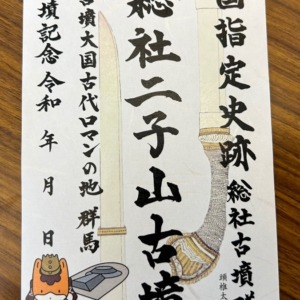 国指定史跡 総社古墳群
総社二子山古墳
頭椎大
古墳大国古代ロマンの地 群馬
墳記念 令和 年 月 日